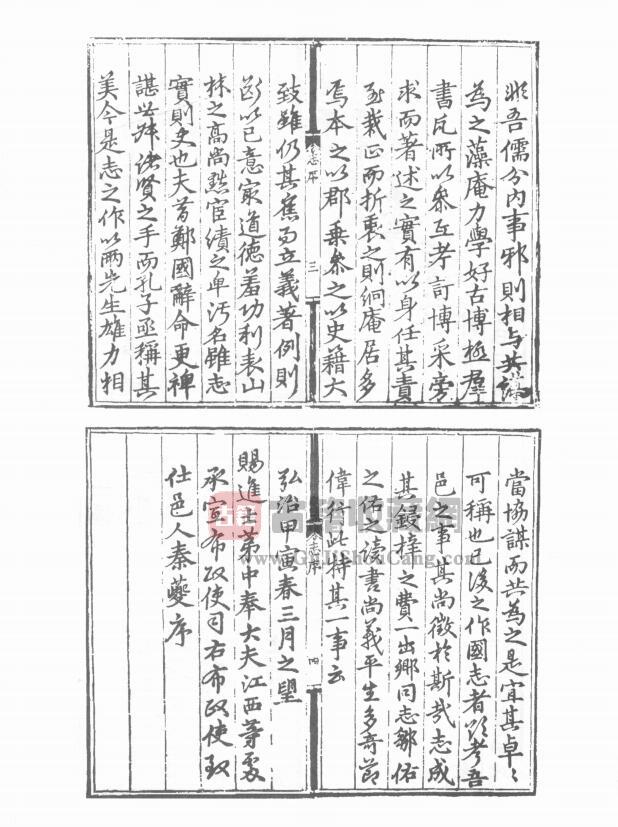 非吾儒分内事邪則相与共編
為之藻庵力學好古博極群
書凡所以叅互考訂博采旁
求而著述之實有以身任其責
至裁正而折衷之則絅庵居多
焉本之以郡乗叅之以史籍大
志序 三
致雖仍其舊而立義著例則
斷以己意冣道德羞功利表山
林之高尚黜宦績之卑汚名雖志
實則史也夫昔鄭國辭命更裨
諶世叔諸賢之手而孔子亟稱其
美今是志之作以兩先生雄力相
當協謀而共為之是宜其卓〻
可稱也已後之作國志者欲考吾
邑之事其尚徵於斯哉志成
其鋟梓之費一出鄉同志鄒佑
之佑之讀書尚義平生多奇節
偉行此特其一事云
志序 四
弘治甲寅春三月之望
賜進士第中奉大夫江西等處
承宣布政使司右布政使致
仕邑人秦夔序
www.GuJiShouCang.com